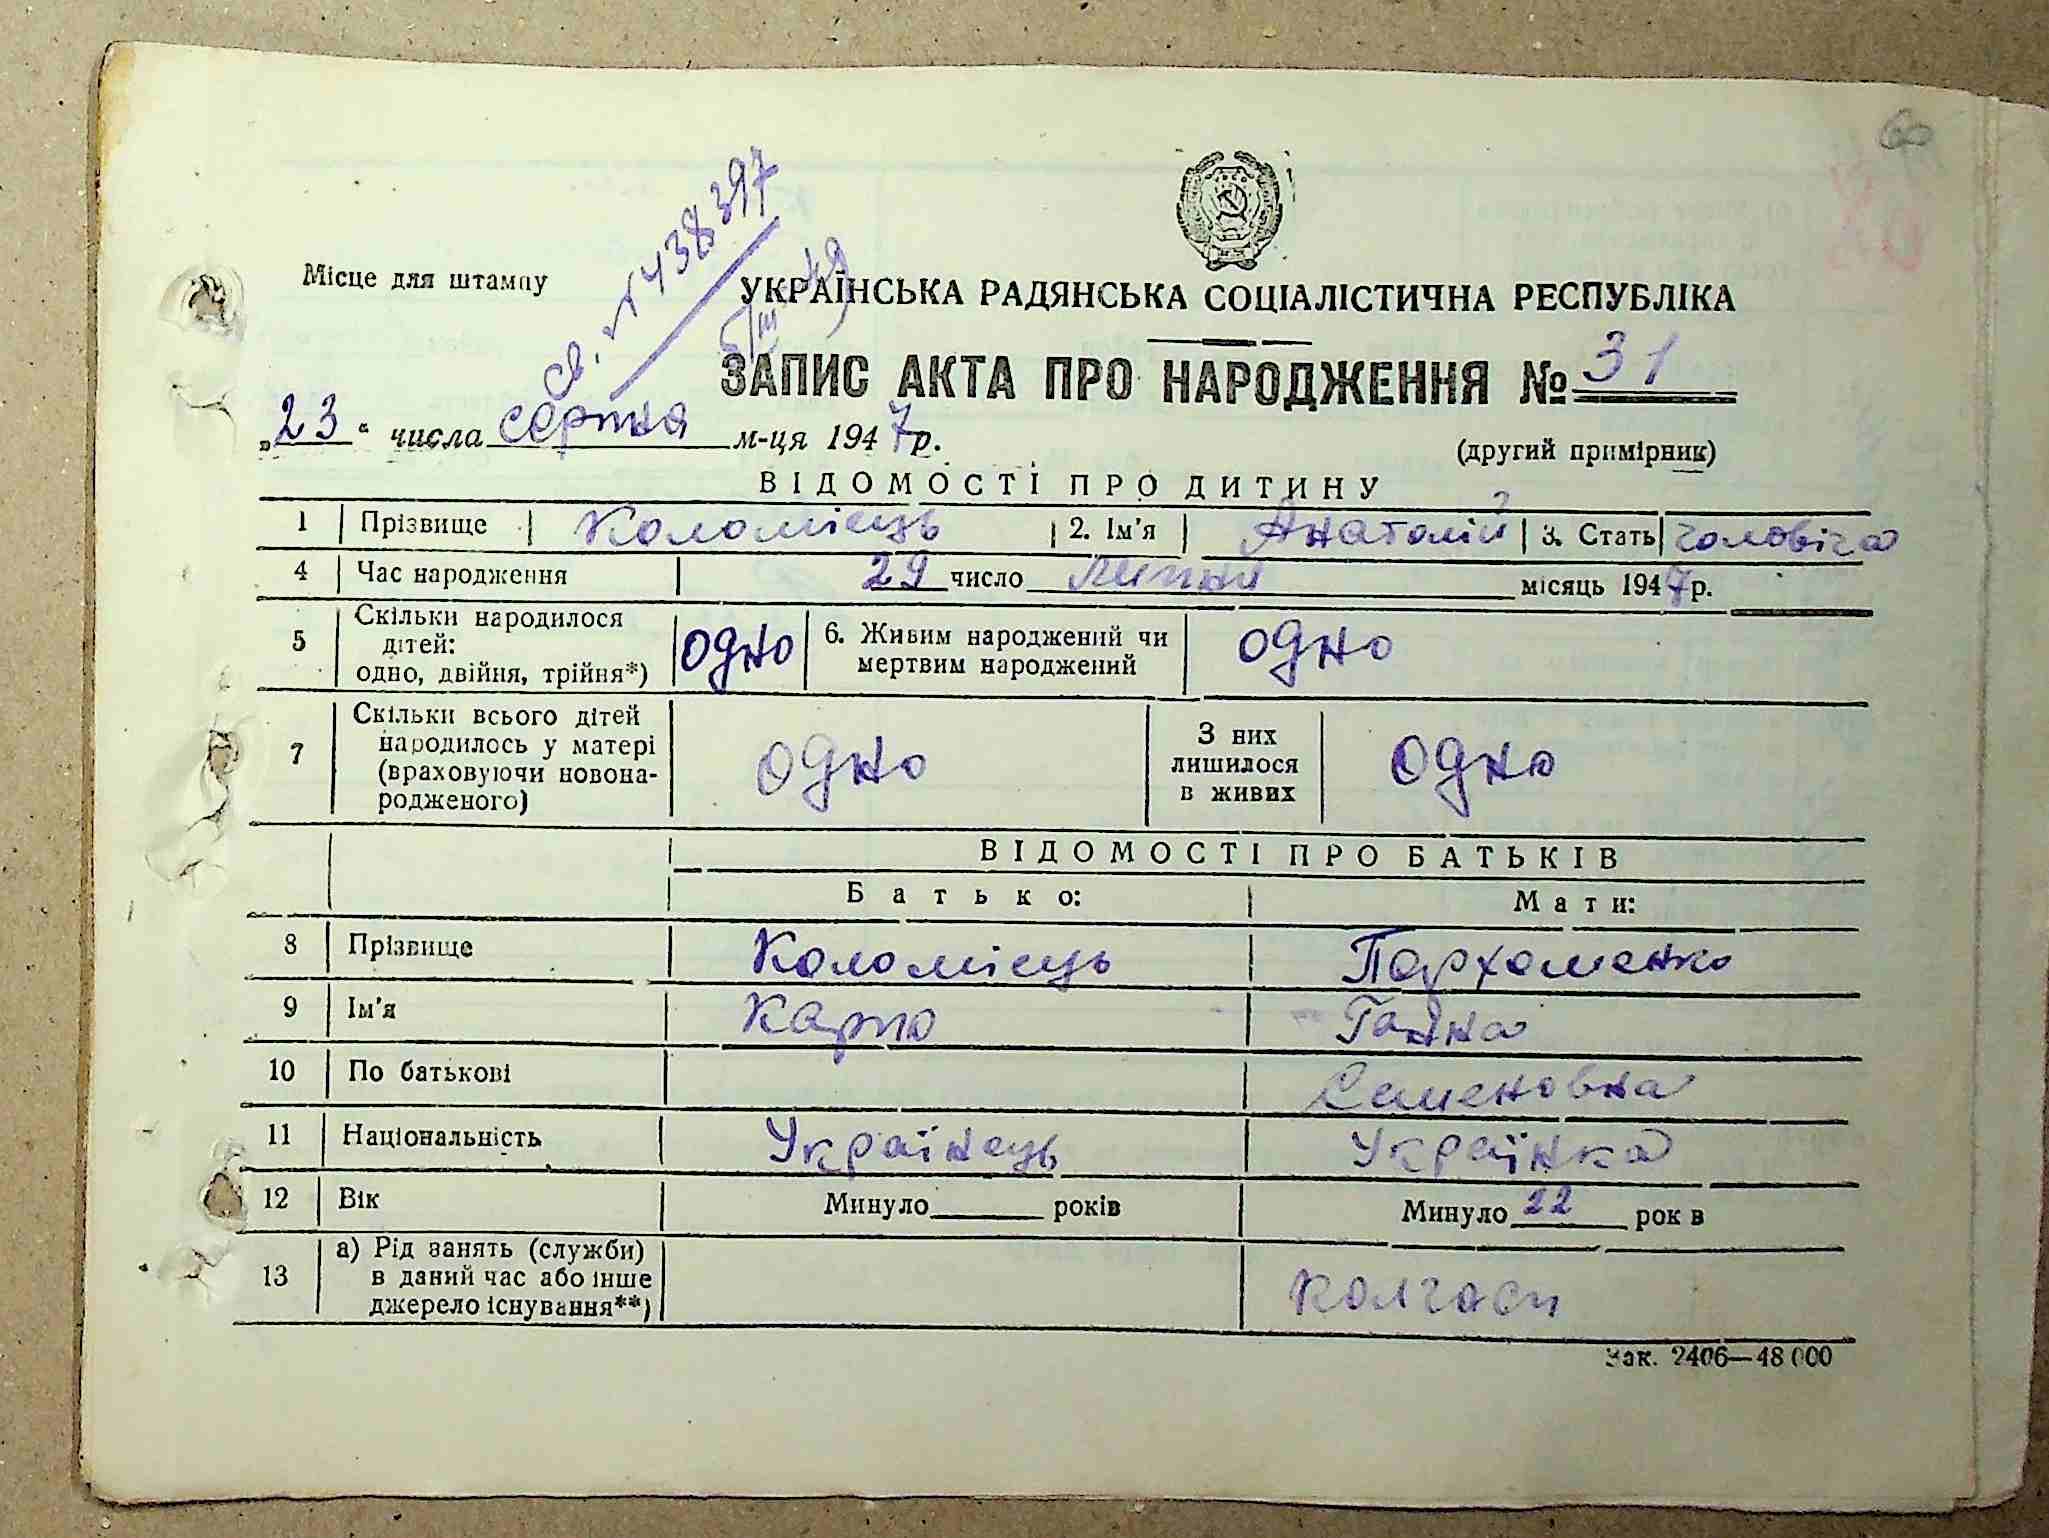 60
св. № 438397
5/III 49
Місце для штампу
УКРАЇНСЬКА РАДЯНСЬКА СОЦІАЛІСТИЧНА РЕСПУБЛІКА
ЗАПИС АКТА ПРО НАРОДЖЕННЯ № 31
„23“ числа серпня м-ця 1947 р.
(другий примірник)
ВІДОМОСТІ ПРО ДИТИНУ
1 Прізвище Коломієць 2. Ім'я Анатолій 3. Стать чоловіча
4 Час народження 29 число Липня місяць 1947 р.
5 Скільки народилося дітей: одно, двійня, трійня*) одно 6. Живим народжений чи мертвим народжений одно
7 Скільки всього дітей народилось у матері (враховуючи новона-родженого) одно З них лишилося в живих одно
ВІДОМОСТІ ПРО БАТЬКІВ
Батько: Мати:
8 Прізвище Коломієць Пархоменко
9 Ім'я Карпо Ганна
10 По батькові Семеновна
11 Національність Українець Українка
12 Вік Минуло років Минуло 22 рок в
13 а) Рід занять (служби) в даний час або інше джерело існування**) колгосп
Зак. 2406—48 000